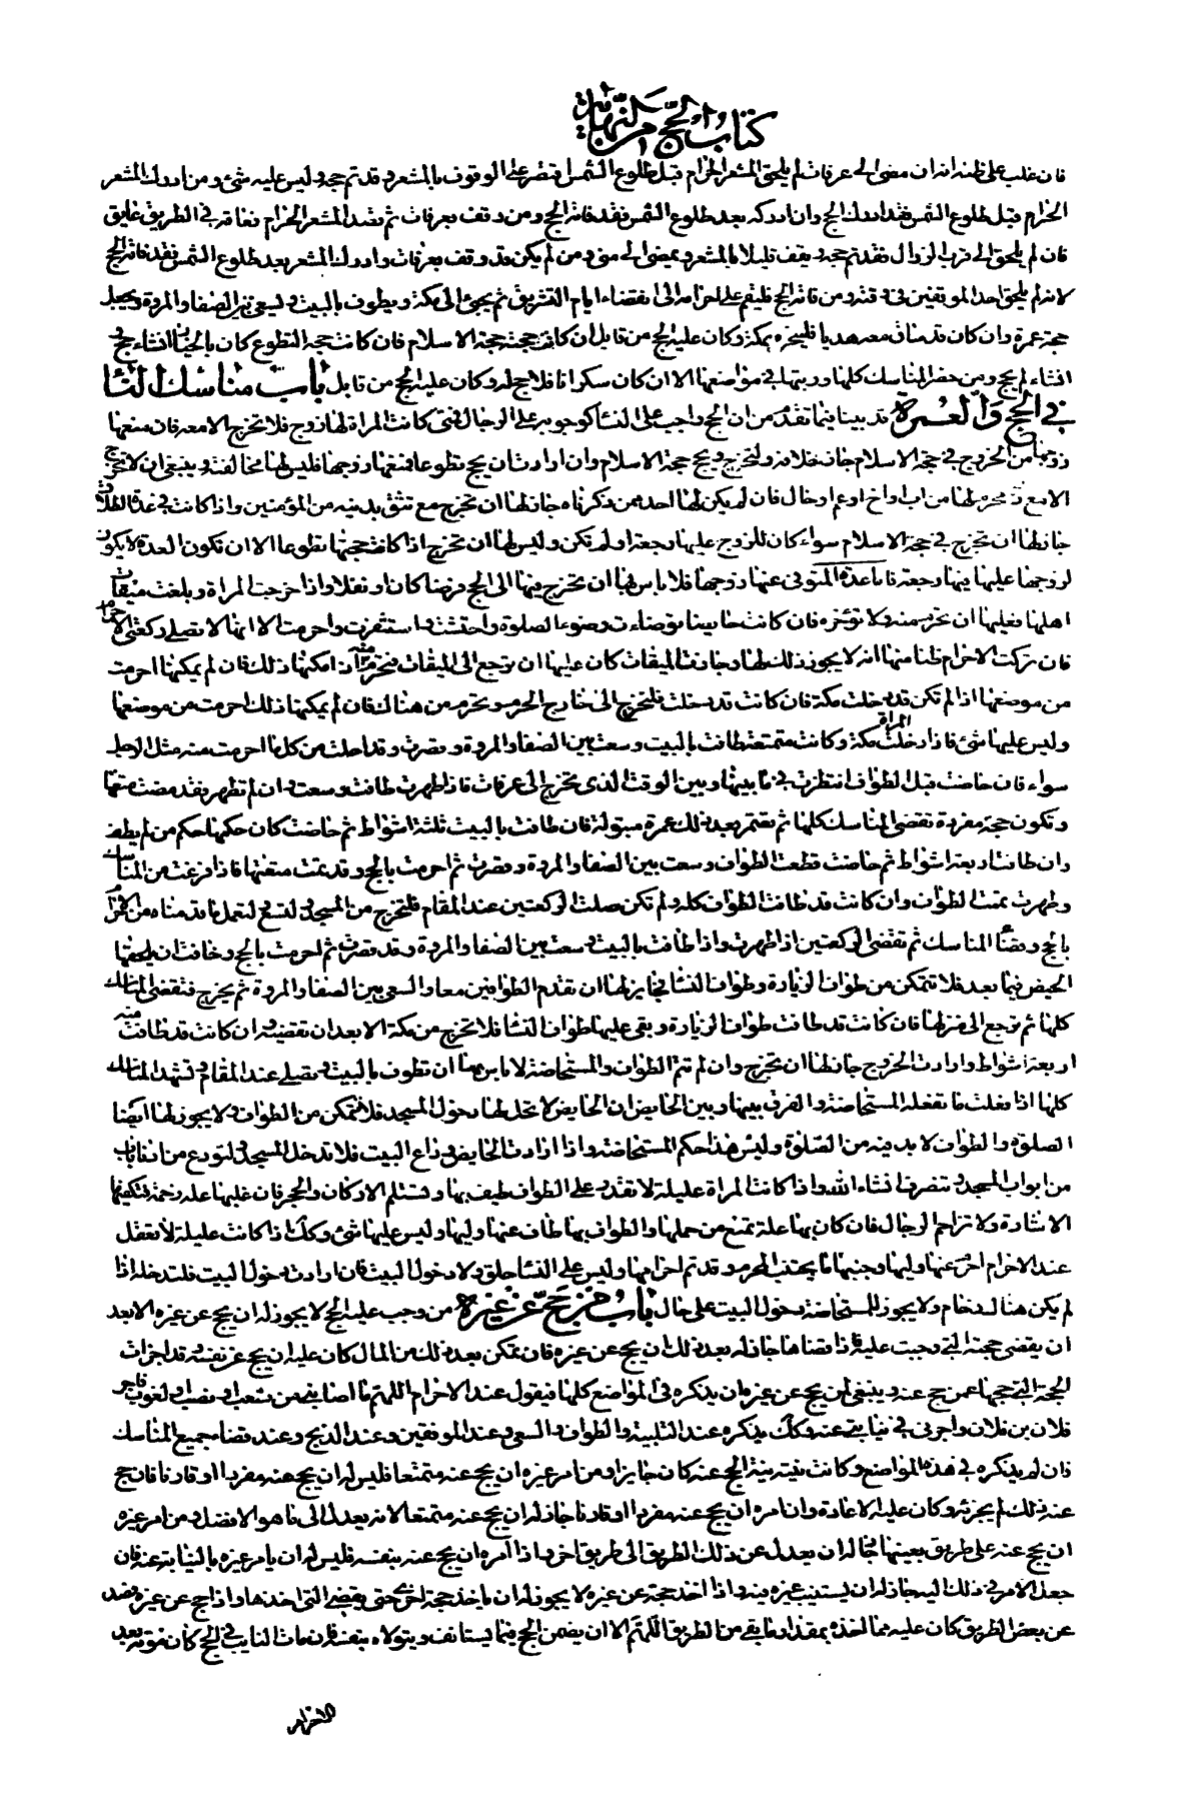 كتاب الحج من النهاية
فان غلب على ظنه انه ان مضى الى عرفات لم يلحق المشعر الحرام قبل طلوع الشمس اقتصر على الوقوف بالمشعر وقد تم حجه وليس عليه شئ ومن ادرك المشعر
الحرام قبل طلوع الشمس فقد ادرك الحج وان ادركه بعد طلوع الشمس فقد فاته الحج ومن وقف بعرفات ثم قصد المشعر الحرام فعاقه في الطريق عايق
فان لم يلحق الى قرب الزوال فقد تم حجه ويقف قليلا بالمشعر ويمضى الى منى ومن لم يكن قد وقف بعرفات وادرك المشعر بعد طلوع الشمس فقد فاته الحج
لانه لم يلحق احد الموقفين في وقته ومن فاته الحج فليقم على احرامه الى انقضاء ايام التشريق ثم يجئ الى مكة ويطوف بالبيت ويسعى بين الصفا والمروة ويجعل
حجته عمرة وان كان قد ساق معه هديا فلينحره بمكة وكان عليه الحج من قابل ان كانت حجته حجة الاسلام فان كانت حجة التطوع كان بالخيار ان شاء حج
ان شاء لم يحج ومن حضر المناسك كلها ورتبها في مواضعها الا ان كان سكرانا فلا حج له وكان عليه الحج من قابل باب مناسك النسا
في الحج والعمرة قد بينا فيما تقدم من ان الحج واجب على النسا كوجوبه على الرجال فمتى كانت المراة لها زوج فلا تخرج الا معه فان منعها
زوجها من الخروج في حجة الاسلام جاز خلافه ولتخرج وتحج حجة الاسلام وان ارادت ان تحج تطوعا فمنعها زوجها فليس لها مخالفته وينبغي ان لا تخرج
الا مع ذي محرم لها من اب او اخ او عم او خال فان لم يكن لها احد ممن ذكرناه جاز لها ان تخرج مع من تثق بدينه من المؤمنين واذا كانت في عدة الطلاق
جاز لها ان تخرج في حجة الاسلام سواء كان للزوج عليها رجعة او لم تكن وليس لها ان تخرج اذا كانت حجتها تطوعا الا ان تكون العدة لا يكون
لزوجها عليها فيها رجعة فاما عدة المتوفى عنها زوجها فلا باس بها ان تخرج فيها الى الحج فرضا كان او نفلا واذا خرجت المراة وبلغت ميقات
اهلها فعليها ان تحرم منه ولا تؤخره فان كانت حايضا توضات وضوء الصلوة واحتشت واستثفرت واحرمت الا انها لا تصلي ركعتي الاحرام
فان تركت الاحرام ظنا منها انه لا يجوز ذلك لها وجازت الميقات كان عليها ان ترجع الى الميقات فتحرم منه اذا امكنها ذلك فان لم يمكنها احرمت
من موضعها اذا لم تكن قد دخلت مكة فان كانت قد دخلت فلتخرج الى خارج الحرم وتحرم من هناك فان لم يمكنها ذلك احرمت من موضعها
وليس عليها شئ فاذا دخلت المراة مكة وكانت متمتعة طافت بالبيت وسعت بين الصفا والمروة وقصرت وقد احلت من كل ما احرمت منه مثل الرجل
سواء فان حاضت قبل الطواف انتظرت في ما بينها وبين الوقت الذي تخرج الى عرفات فاذا طهرت طافت وسعت وان لم تطهر فقد مضت متعتها
وتكون حجة مفردة تقضى المناسك كلها ثم تعتمر بعد ذلك عمرة مبتولة فان طافت بالبيت ثلثة اشواط ثم حاضت كان حكمها حكم من لم يطف
وان طافت اربعة اشواط ثم حاضت قطعت الطواف وسعت بين الصفا والمروة وقصرت ثم احرمت بالحج وقد تمت متعتها فاذا فرغت من المناسك
وطهرت تمت الطواف وان كانت قد طافت الطواف كله ولم تكن صلت الركعتين عند المقام فلتخرج من المسجد ولتسع ولتعمل ما قدمناه من الاحرام
بالحج وقضا المناسك ثم تقضى الركعتين اذا طهرت واذا طافت بالبيت وسعت بين الصفا والمروة وقد قصرت ثم احرمت بالحج وخافت ان يلحقها
الحيض فيما بعد فلا تتمكن من طواف الزيارة وطواف النسا فجايز لها ان تقدم الطوافين معا والسعي بين الصفا والمروة ثم يخرج فتقضى المناسك
كلها ثم ترجع الى منزلها فان كانت قد طافت طواف الزيارة وبقى عليها طواف النسا فلا تخرج من مكة الا بعد ان تقضيه وان كانت قد طافت منه
اربعة اشواط وارادت الخروج جاز لها ان تخرج وان لم تتم الطواف والمستحاضة لا باس بها ان تطوف بالبيت وتصلي عند المقام وتشهد المناسك
كلها اذا فعلت ما تفعله المستحاضة والفرق بينها وبين الحايض ان الحايض لا تحل لها دخول المسجد فلا تتمكن من الطواف ولا يجوز لها ايضا
الصلوة والطواف لا بد فيه من الصلوة وليس هذا حكم المستحاضة واذا ارادت الحايض وداع البيت فلا تدخل المسجد ولتودع من ادنا باب
من ابواب المسجد وتنصرف انشاء الله واذا كانت المراة عليلة لا تقدر على الطواف طيف بها وتستلم الاركان والحجر فان غلبها عليه زحمة فتكفيها
الاشارة ولا تزاحم الرجال فان كان بها علة تمنع من حملها والطواف بها طاف عنها وليها وليس عليها شئ وكك اذا كانت عليلة لا تعقل
عند الاحرام احرم عنها وليها وجنبها ما يجتنب المحرم وقد تم احرامها وليس على النسا حلق ولا دخول البيت فان ارادت دخول البيت فلتدخله اذا
لم يكن هناك زحام ولا يجوز للمستحاضة دخول البيت على حال باب من حج عن غيره من وجب عليه الحج لا يجوز له ان يحج عن غيره الا بعد
ان يقضى حجته التي وجبت عليه فاذا قضاها جاز له بعد ذلك ان يحج عن غيره فان تمكن بعد ذلك من المال كان عليه ان يحج عن نفسه وقد اجزات
الحجة التي حجها عمن حج عنه وينبغي لمن يحج عن غيره ان يذكره في المواضع كلها فيقول عند الاحرام اللهم ما اصابني من شعث او نصب او لغوب فاجر
فلان بن فلان واجرني في نيابتي عنه وكك يذكره عند التلبية والطواف والسعى وعند الموقفين وعند الذبح وعند قضاء جميع المناسك
فان لم يذكره في هذه المواضع وكانت نيته نية الحج عنه كان جايزا ومن امر غيره ان يحج عنه متمتعا فليس له ان يحج عنه مفردا او قارنا فان حج
عنه ذلك لم يجزئه وكان عليه الاعادة وان امره ان يحج عنه مفردا او قارنا جاز له ان يحج عنه متمتعا لانه يعدل الى ما هو الافضل ومن امر غيره
ان يحج عنه على طريق بعينها جاز له ان يعدل عن ذلك الطريق الى طريق اخر واذا امره ان يحج عنه بنفسه فليس له ان يامر غيره بالنيابة عنه فان
جعل الامر في ذلك اليه جاز له ان يستنيب غيره فيه واذا اخذ حجة عن غيره لا يجوز له ان ياخذ حجة اخرى حتى يقضى التي اخذها واذا حج عن غيره فصد
عن بعض الطريق كان عليه مما اخذه بمقدار ما بقى من الطريق اللهم الا ان يضمن الحج فيما يستانف ويتولاه بنفسه فان مات النايب في الحج كان موته بعد
الاحرام